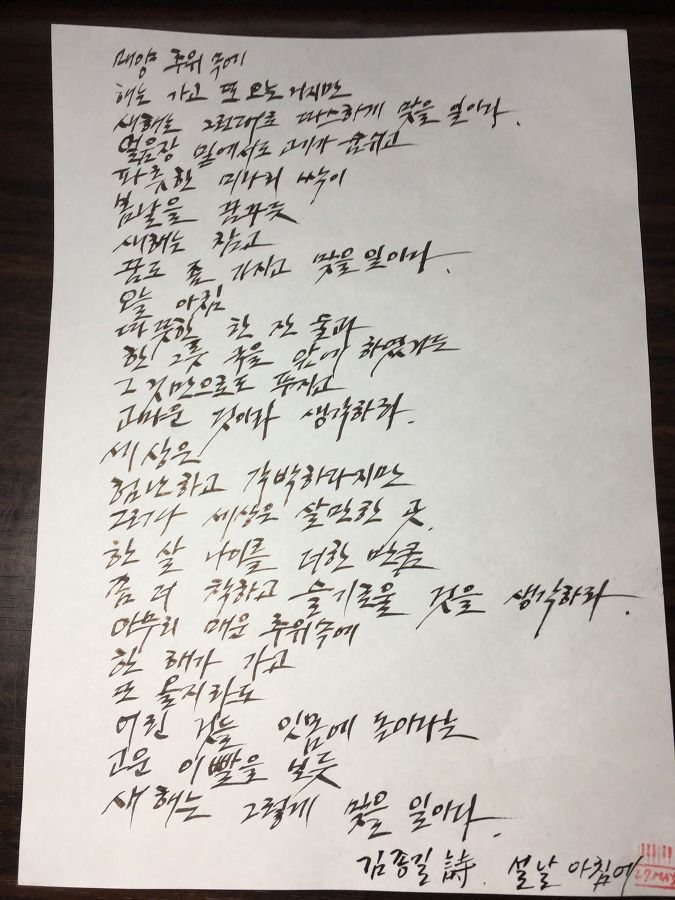 매양 추위 속에
해는 가고 또 오는 거지만
새해는 그런대로 따스하게 맞을 일이다.
얼음장 밑에서도 고기가 숨쉬고
파릇한 미나리 싹이
봄날을 꿈꾸듯
새해는 참고
꿈도 좀 가지고 맞을 일이다.
오늘 아침
따뜻한 한 잔 술과
한 그릇 국을 앞에 하였거든
그것만으로도 푸지고
고마운 것이라 생각하라.
세상은
험난하고 각박하다지만
그러나 세상은 살만한 곳.
한 살 나이를 더한 만큼
좀 더 착하고 슬기로울 것을 생각하라.
아무리 매운 추위속에
한 해가 가고
또 올지라도
어린 것들 잇몸에 돋아나는
고운 이빨을 보듯
새해는 그렇게 맞을 일이다.
김종길 詩. 설날 아침에
27.MAY